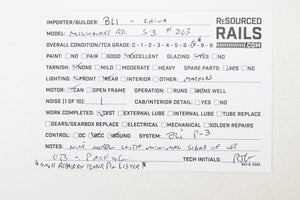 IMPORTER/BUILDER: BLI - CHINA
RESOURCED
RAILS
.COM
MODEL: MILWAUKEE RD S-3 #203
OVERALL CONDITION/TCA GRADE: C - 1 - 2 - 3 - 4 - 5 - 6 - 7 - 8 - 9
PAINT: NO FAIR GOOD EXCELLENT GLAZING: YES NO
TARNISH: NONE MILD MODERATE HEAVY SPARE PARTS: YES NO
LIGHTING: FRONT REAR INTERIOR OTHER: MARKERS
MOTOR: CAN OPEN FRAME OPERATION: RUNS SKIN WELL
NOISE (1 OF 10): 1 CAB/INTERIOR DETAIL: YES NO
WORK COMPLETED: TEST EXTERNAL LUBE INTERNAL LUBE TUBE REPLACE
GEARS/GEARBOX REPLACE ELECTRICAL MECHANICAL SOLDER REPAIRS
CONTROL: DC DCC SOUND SYSTEM: BLI P-3
NOTES: NOT WORN WITH MINIMAL SIGNS OF USE
OB - PACKING
*SMALL REPAIR ON TENDER PIN LIFTER* TECH INITIALS: